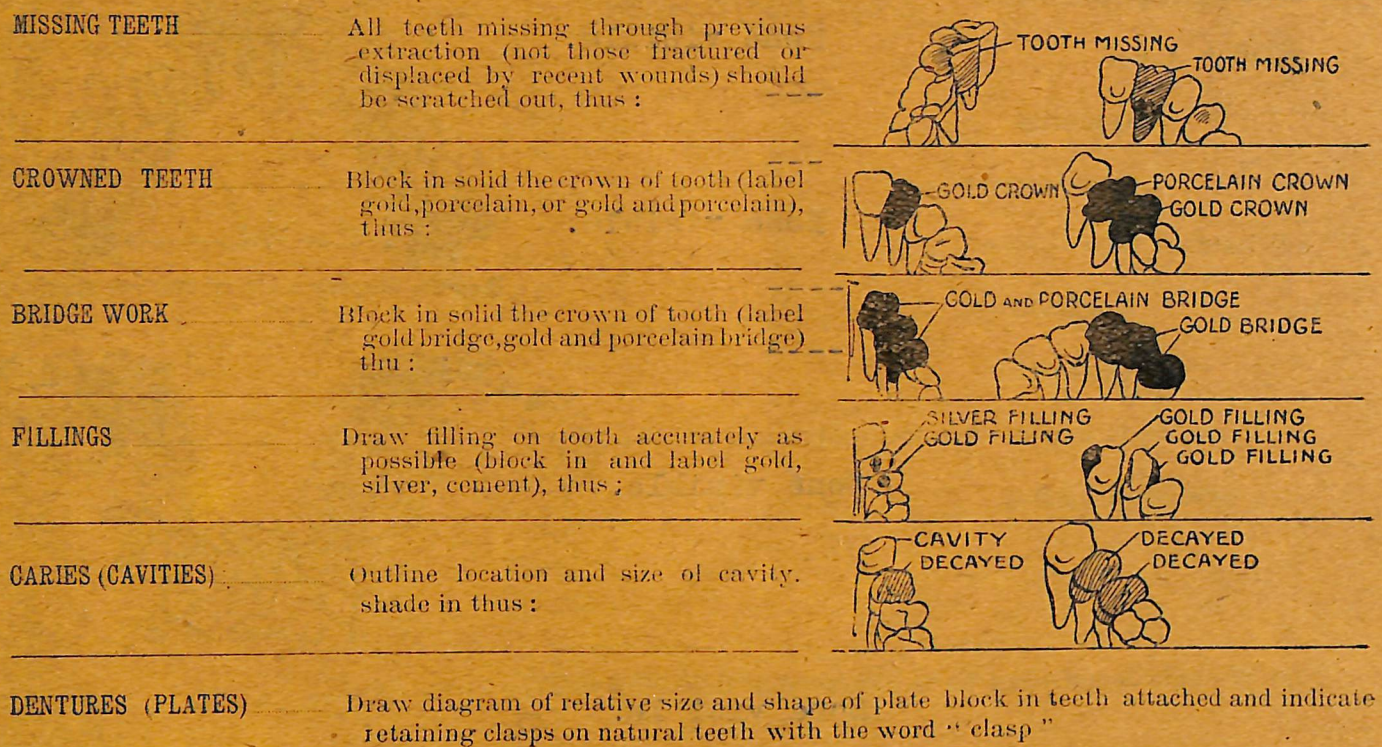 MISSING TEETH
All teeth missing through previous
extraction (not those fractured or
displaced by recent wounds) should
be scratched out, thus :
TOOTH MISSING
TOOTH MISSING
CROWNED TEETH
Block in solid the crown of tooth (label
gold, porcelain, or gold and porcelain),
thus :
GOLD CROWN
PORCELAIN CROWN
GOLD CROWN
BRIDGE WORK
Block in solid the crown of tooth (label
gold bridge, gold and porcelain bridge)
thu :
GOLD AND PORCELAIN BRIDGE
GOLD BRIDGE
FILLINGS
Draw filling on tooth accurately as
possible (block in and label gold,
silver, cement), thus ;
SILVER FILLING
GOLD FILLING
GOLD FILLING
GOLD FILLING
GOLD FILLING
CARIES (CAVITIES)
Outline location and size of cavity.
shade in thus :
CAVITY
DECAYED
DECAYED
DECAYED
DENTURES (PLATES)
Draw diagram of relative size and shape of plate block in teeth attached and indicate
retaining clasps on natural teeth with the word " clasp "